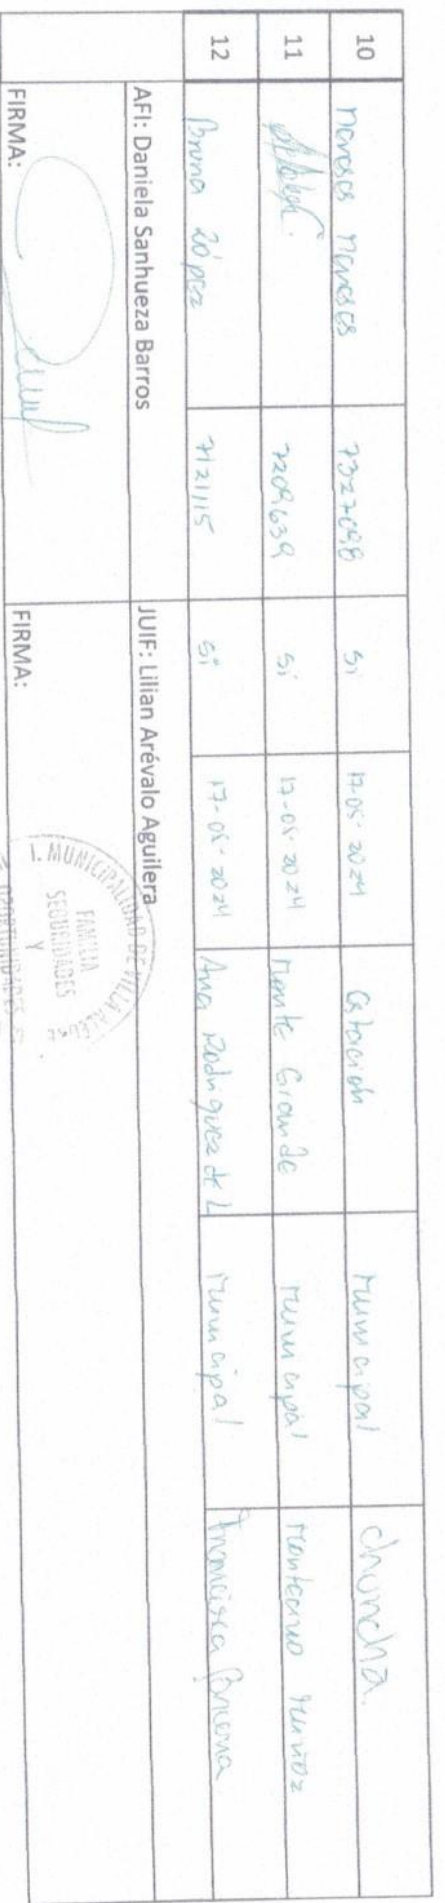 10 Meneses Meneses 7327098 si 17-05-2024 Estación Municipal
11 7209639 si 17-05-2024 Monte Grande Municipal Montecino Muñoz
12 López 7121115 si 17-05-2024 Ana Rodriguez de L Municipal Francisca
AFI: Daniela Sanhueza Barros JUIF: Lilian Arévalo Aguilera
FIRMA: FIRMA:
I. MUNICIPALIDAD DE
FAMILIA
SEGURIDADES
Y
OPORTUNIDADES